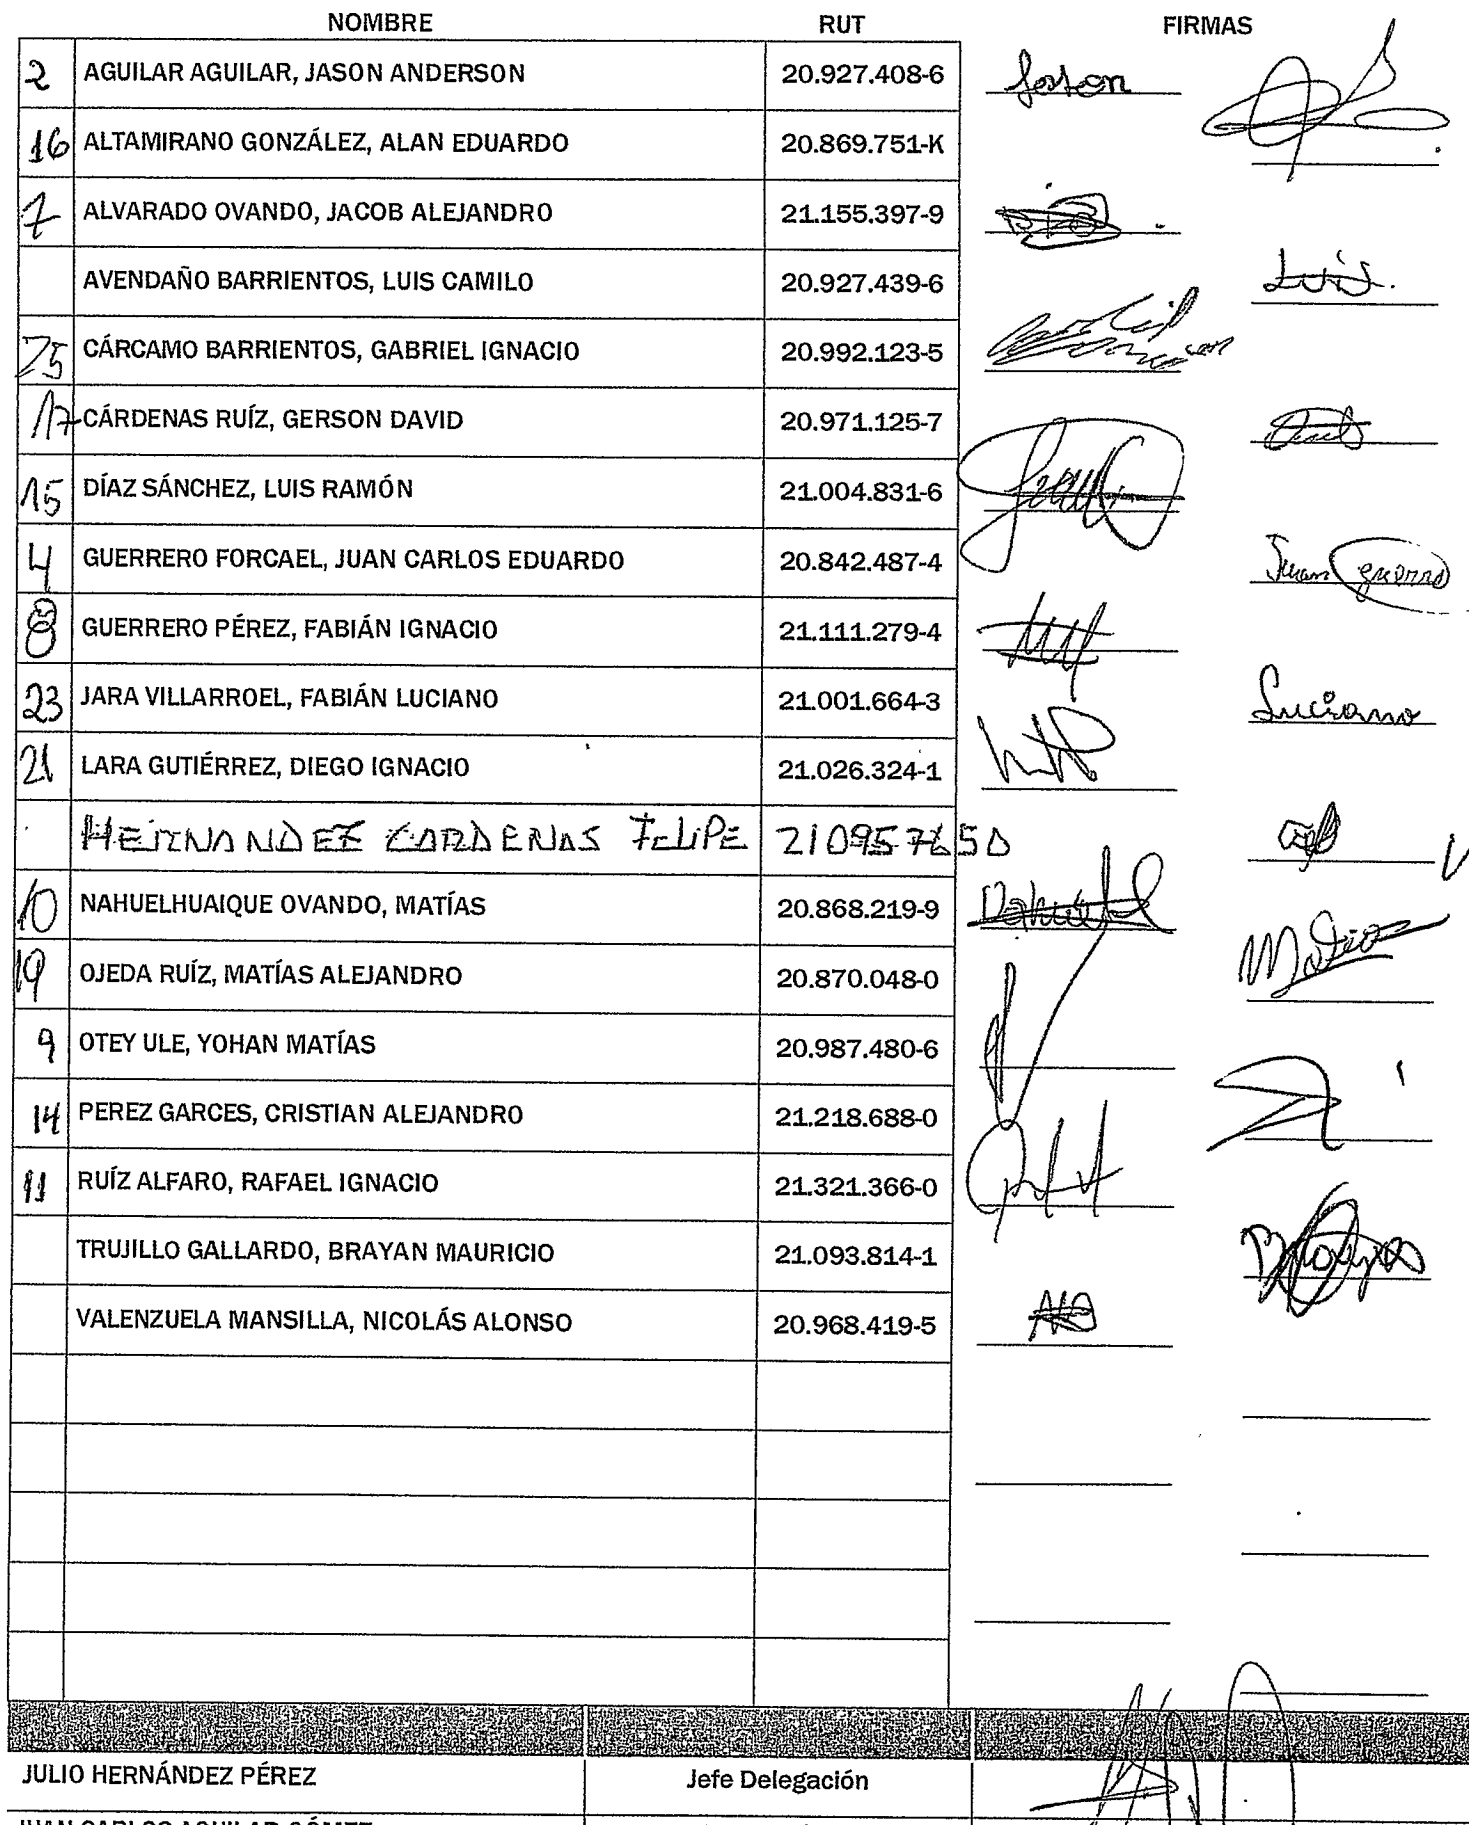 NOMBRE RUT FIRMAS
2 AGUILAR AGUILAR, JASON ANDERSON 20.927.408-6
16 ALTAMIRANO GONZÁLEZ, ALAN EDUARDO 20.869.751-K
7 ALVARADO OVANDO, JACOB ALEJANDRO 21.155.397-9
AVENDAÑO BARRIENTOS, LUIS CAMILO 20.927.439-6 Luis.
25 CÁRCAMO BARRIENTOS, GABRIEL IGNACIO 20.992.123-5
17 CÁRDENAS RUÍZ, GERSON DAVID 20.971.125-7
15 DÍAZ SÁNCHEZ, LUIS RAMÓN 21.004.831-6
4 GUERRERO FORCAEL, JUAN CARLOS EDUARDO 20.842.487-4 Juan
8 GUERRERO PÉREZ, FABIÁN IGNACIO 21.111.279-4
23 JARA VILLARROEL, FABIÁN LUCIANO 21.001.664-3 Luciano
21 LARA GUTIÉRREZ, DIEGO IGNACIO 21.026.324-1
HERNANDEZ CARDENAS FELIPE
10 NAHUELHUAIQUE OVANDO, MATÍAS 20.868.219-9 Nahuel
19 OJEDA RUÍZ, MATÍAS ALEJANDRO 20.870.048-0 Matias
9 OTEY ULE, YOHAN MATÍAS 20.987.480-6
14 PEREZ GARCES, CRISTIAN ALEJANDRO 21.218.688-0
11 RUÍZ ALFARO, RAFAEL IGNACIO 21.321.366-0
TRUJILLO GALLARDO, BRAYAN MAURICIO 21.093.814-1
VALENZUELA MANSILLA, NICOLÁS ALONSO 20.968.419-5
JULIO HERNÁNDEZ PÉREZ Jefe Delegación
JUAN CARLOS AGUILAR GÓMEZ